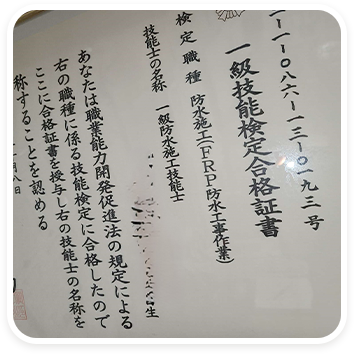 一一一〇八六一一三一〇一九三号
一級技能検定合格証書
検定職種 防水施工(FRP防水工事作業)
技能士の名称 一級防水施工技能士
生
あなたは職業能力開発促進法の規定による
右の職種に係る技能検定に合格したので
ここに合格証書を授与し右の技能士の名称を
称することを認める
月八日